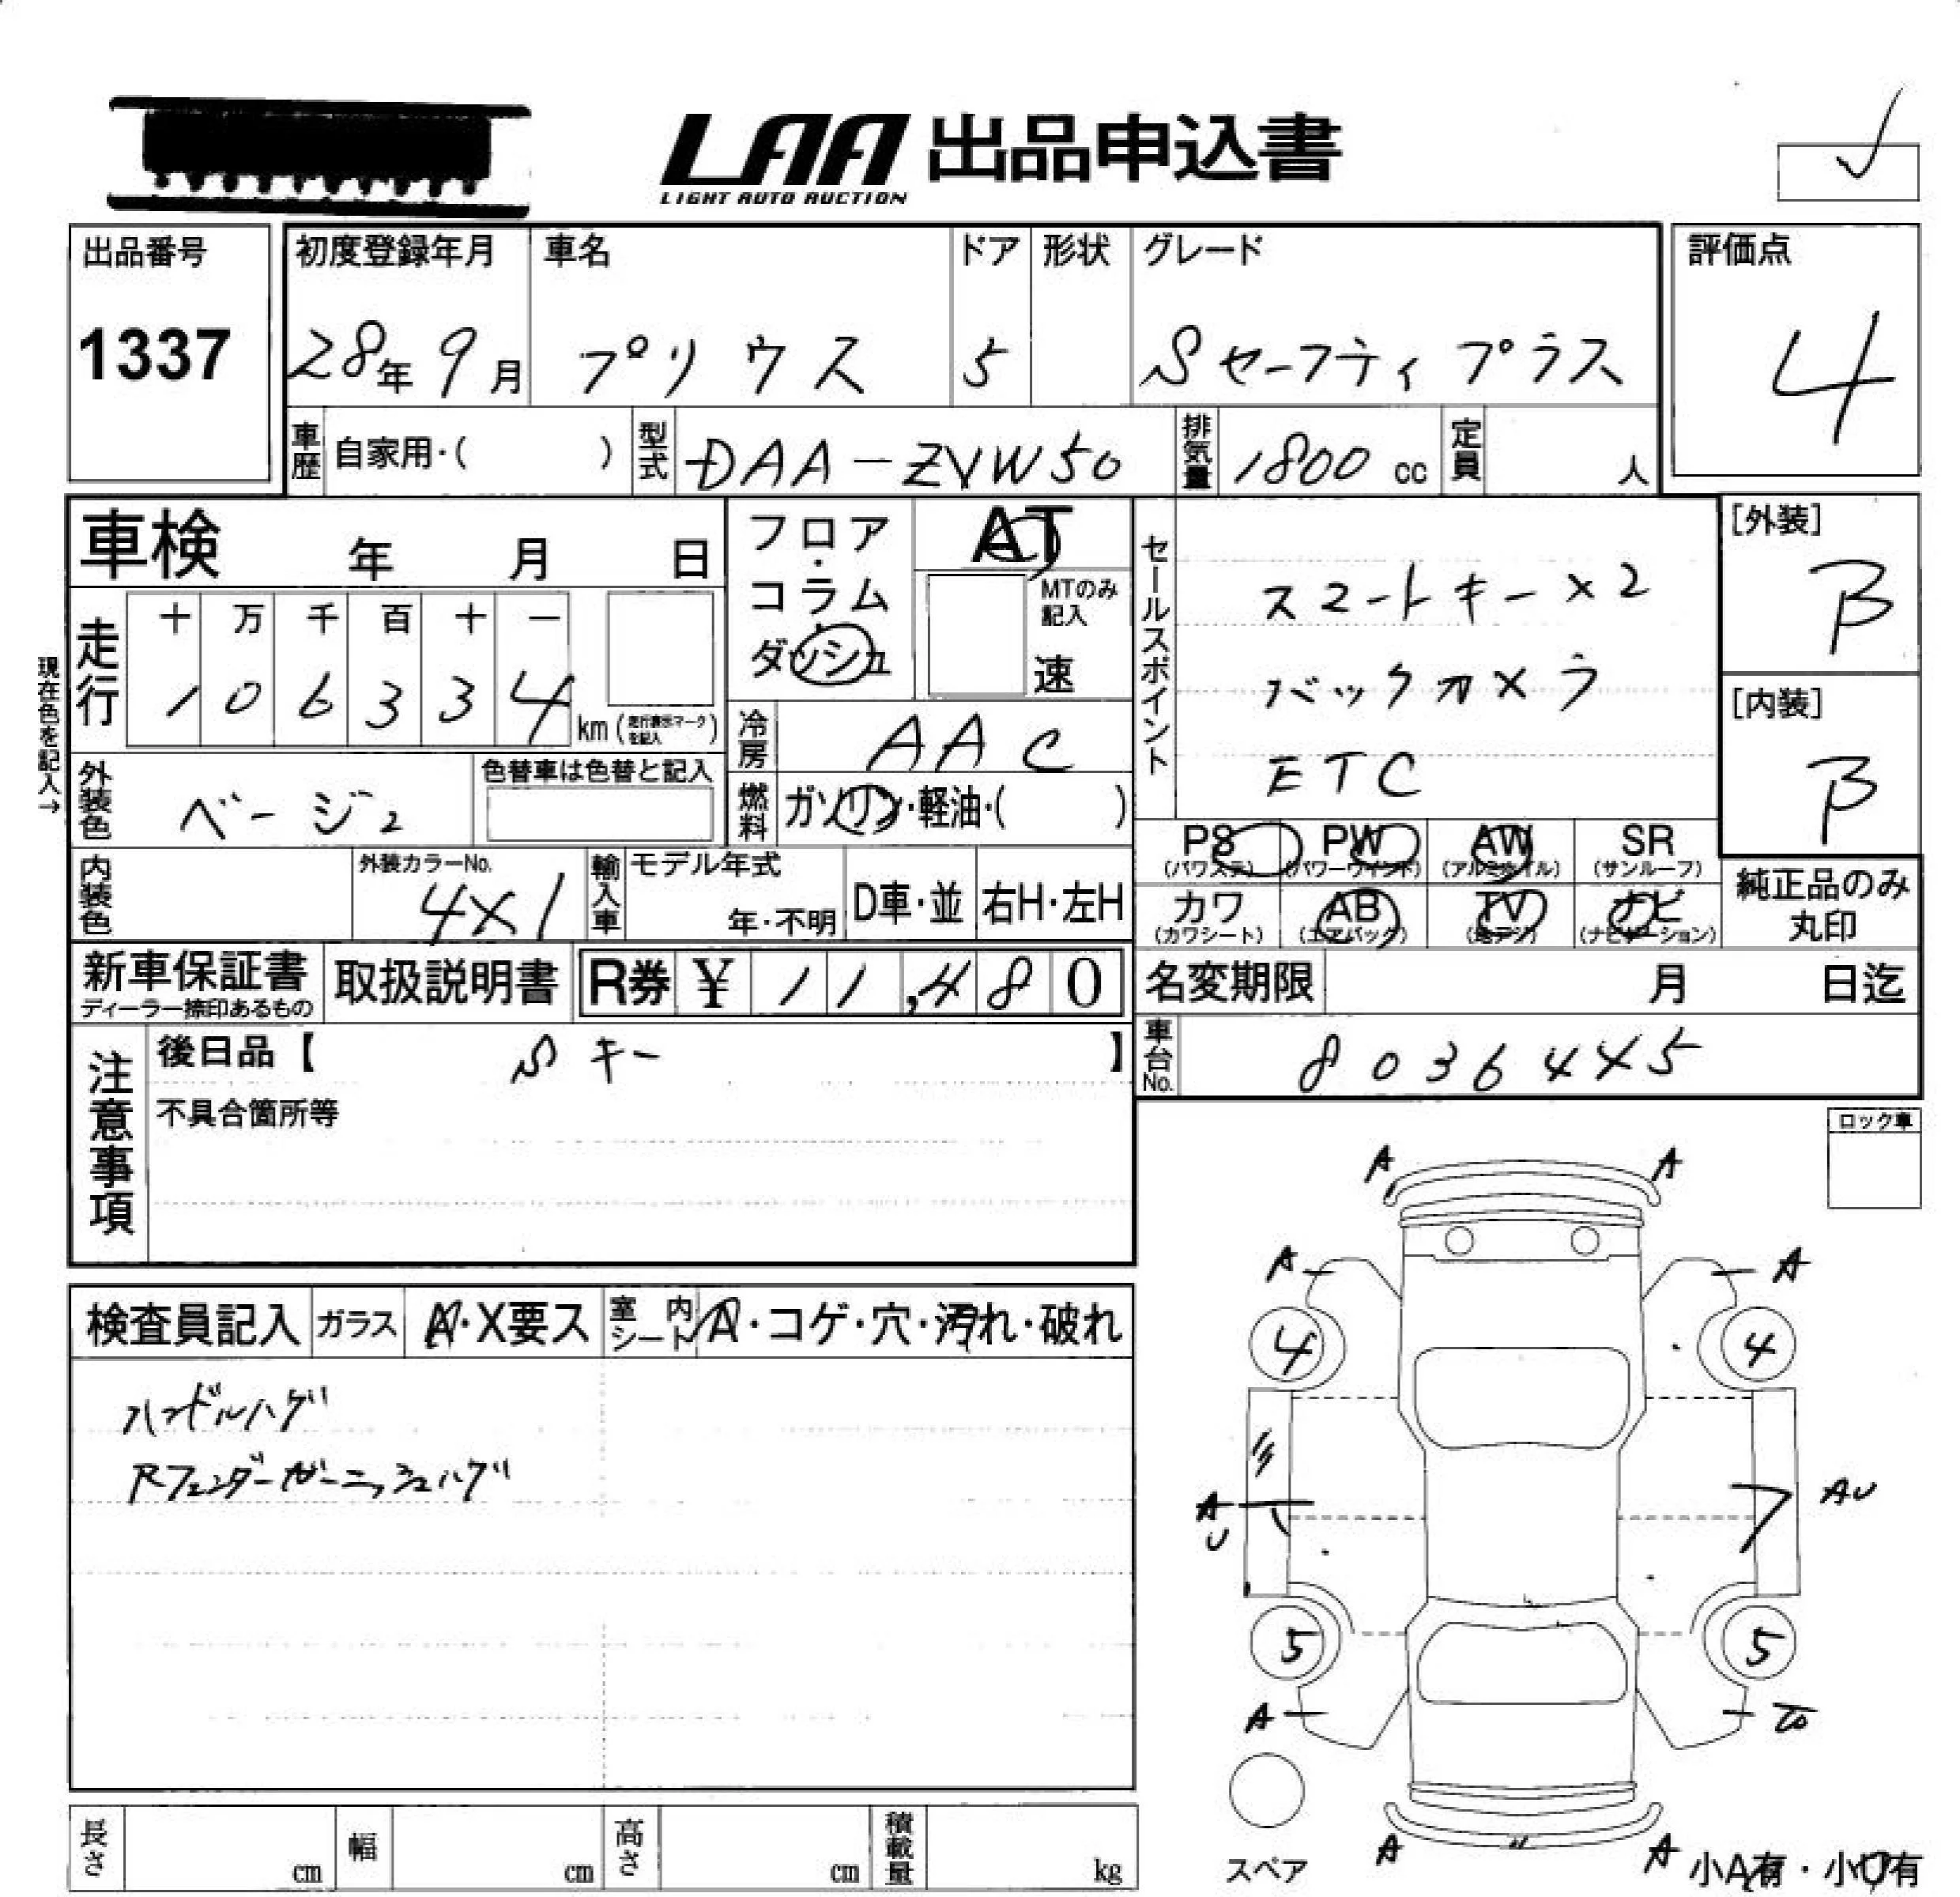 LAA 出品申込書
LIGHT AUTO AUCTION
出品番号
1337
初度登録年月
28年 9月
車名
プリウス
ドア
5
形状
グレード
Sセーフティプラス
評価点
4
車歴
自家用・( )
型式
DAA-ZVW50
排気量
1800 cc
定員
人
車検 年 月 日
フロア・コラム・ダッシュ
AT
MTのみ記入
速
セールスポイント
スマートキー×2
バックカメラ
ETC
[外装]
B
[内装]
B
現在色を記入→
走行
十 万 千 百 十 一
1 0 6 3 3 4
km (走行表示マークを記入)
冷房
AAC
外装色
ベージュ
色替車は色替と記入
燃料
ガソリン・軽油・( )
PS
(パワステ)
PW
(パワーウインド)
AW
(アルミホイル)
SR
(サンルーフ)
カワ
(カワシート)
AB
(エアバック)
TV
(地デジ)
ナビ
(ナビゲーション)
純正品のみ
丸印
内装色
外装カラーNo.
4X1
輸入車
モデル年式
年・不明
D車・並
右H・左H
新車保証書
ディーラー捺印あるもの
取扱説明書
R券 ¥ 11,480
名変期限 月 日迄
車台No.
8036445
注意事項
後日品【 Sキー 】
不具合箇所等
ロック車
検査員記入
ガラス
A・X要ス
室内シート
A・コゲ・穴・汚れ・破れ
ハンドルハゲ
Rフェンダーガーニッシュハゲ
A A
A A
4 4
A U
AU
5 5
A
A A
スペア
小A有・小U有
長さ cm
幅 cm
高さ cm
積載量 kg